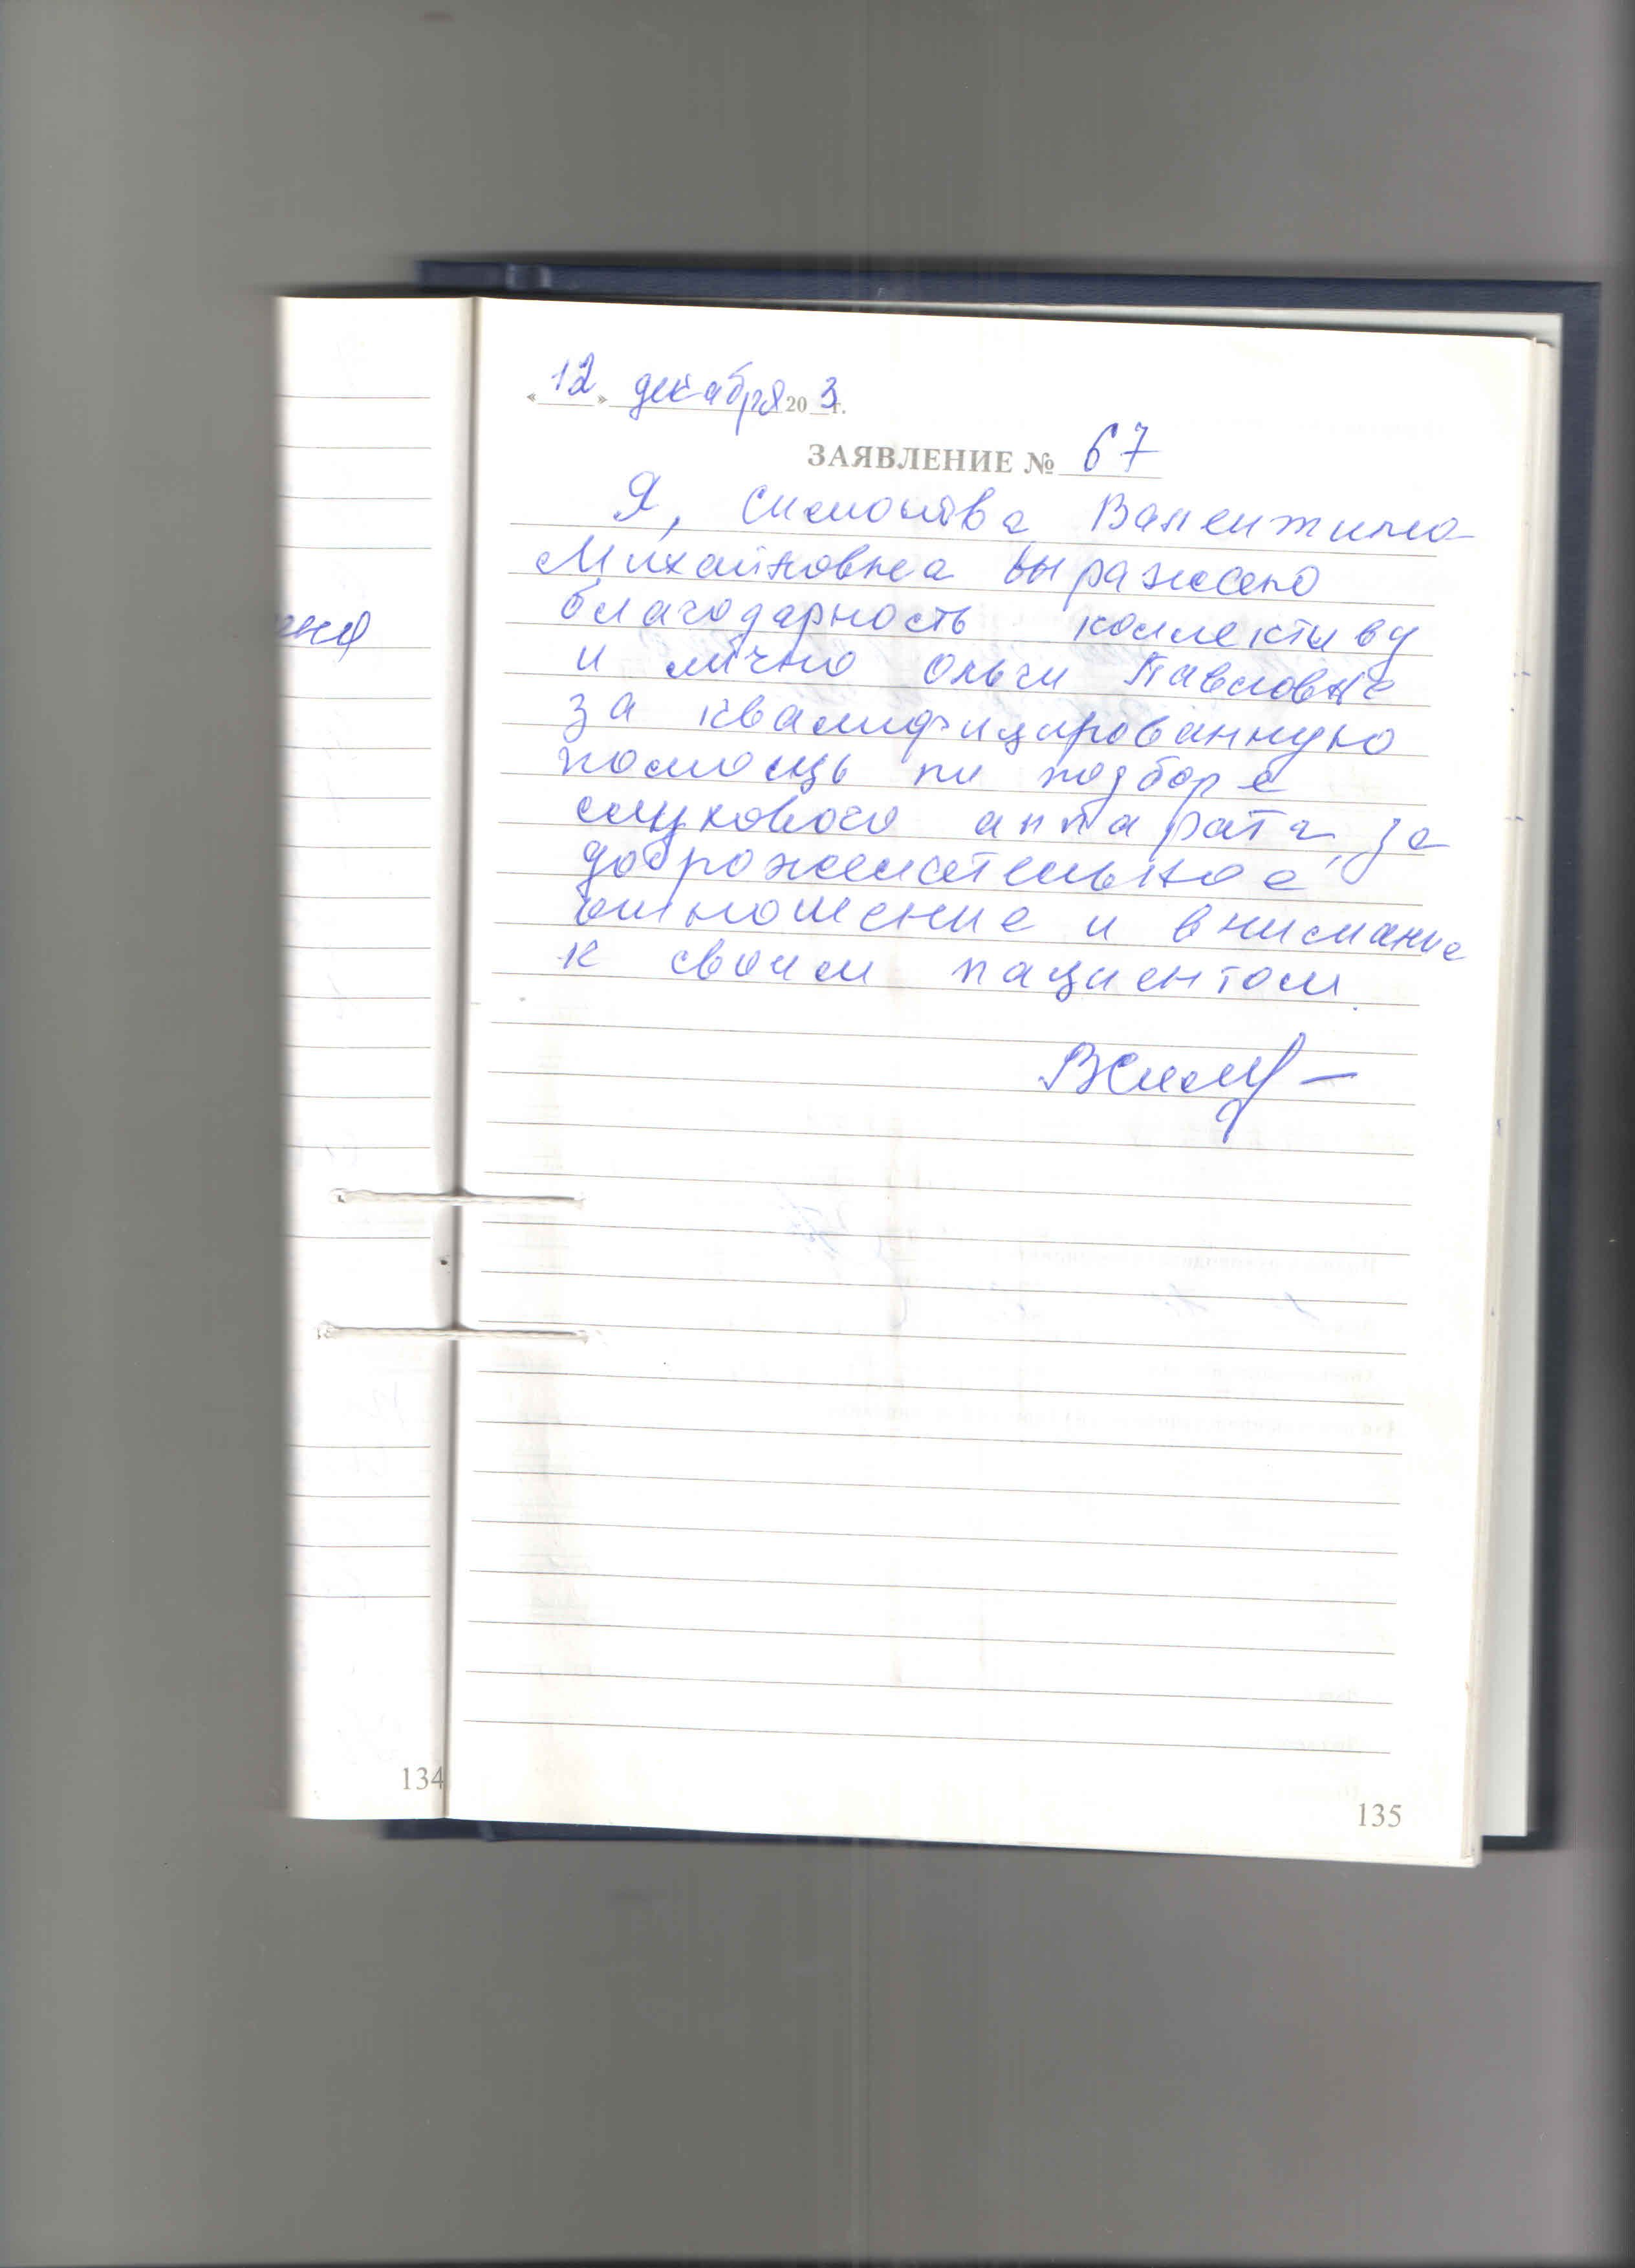 «12» декабря 20 3 г.
ЗАЯВЛЕНИЕ № 67
Я, Симонова Валентина
Михайловна выражаю
благодарность коллективу
и лично Ольги Павловне
за квалифицированную
помощь пи подборе
слухового аппарата, за
доброжелательное
отношение и внимание
к своим пациентом.
134
135